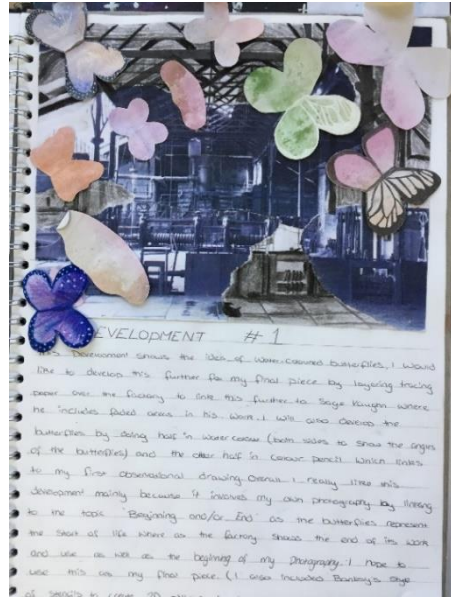 EVELOPMENT # 1
Development shows the idea of water-coloured butterflies, I would
like to develop this further for my final piece by layering tracing
paper over the factory to link this further to Sage Vaughn where
he includes faded areas in his work. I will also develop the
butterflies by doing half in water colour (both sides to show the angles
of the butterflies) and the other half in colour pencil which links
to my first observational drawing. Overall I really like this
development mainly because it involves my own photography by linking
to the topic 'Beginning and/or End' as the butterflies represent
the start of life where as the factory shows the end of its work
and use as well as the beginning of my photography. I hope to
use this as my final piece. (I also included style
of